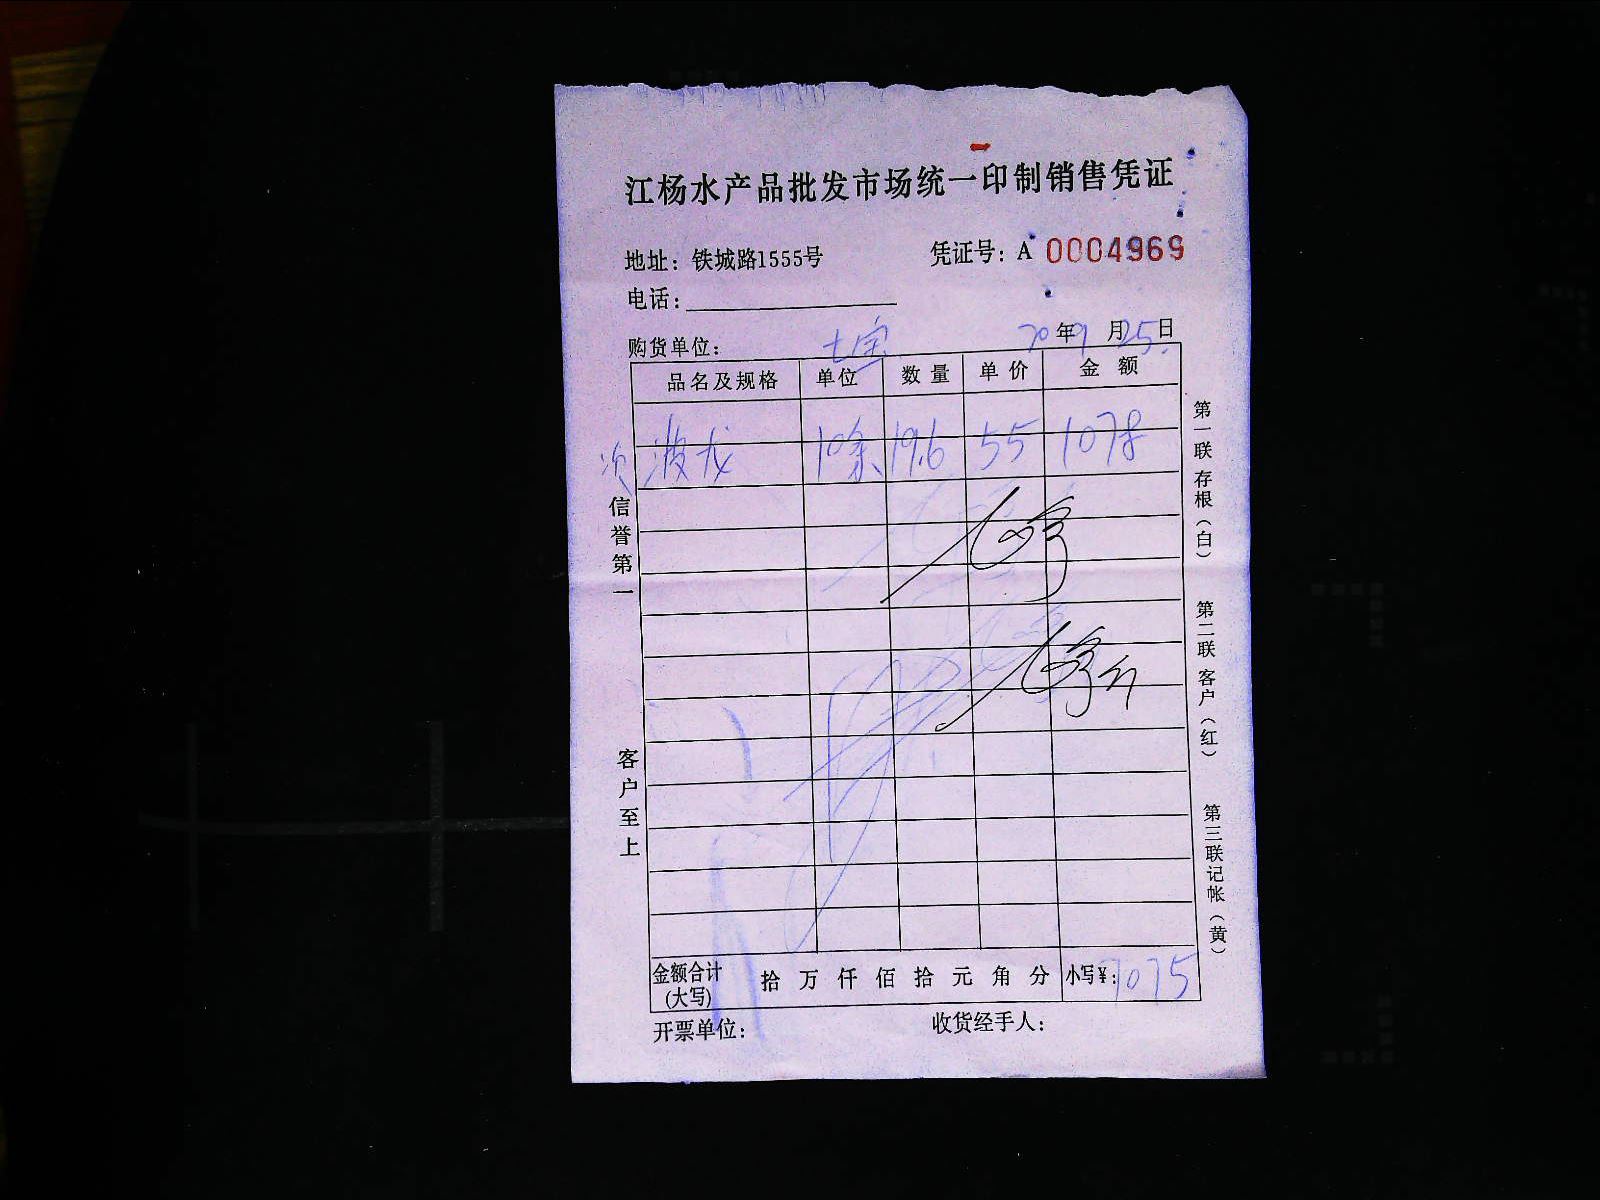 江杨水产品批发市场统一印制销售凭证
地址：铁城路1555号 凭证号：A 0004969
电话：
购货单位： 七宝 20年9月25日
品名及规格 单位 数量 单价 金额
波龙 10余 19.6 55 1078
信誉第一
客户至上
第一联存根（白）
第二联客户（红）
第三联记帐（黄）
金额合计(大写) 拾 万 仟 佰 拾 元 角 分 小写¥： 1075
开票单位： 收货经手人：